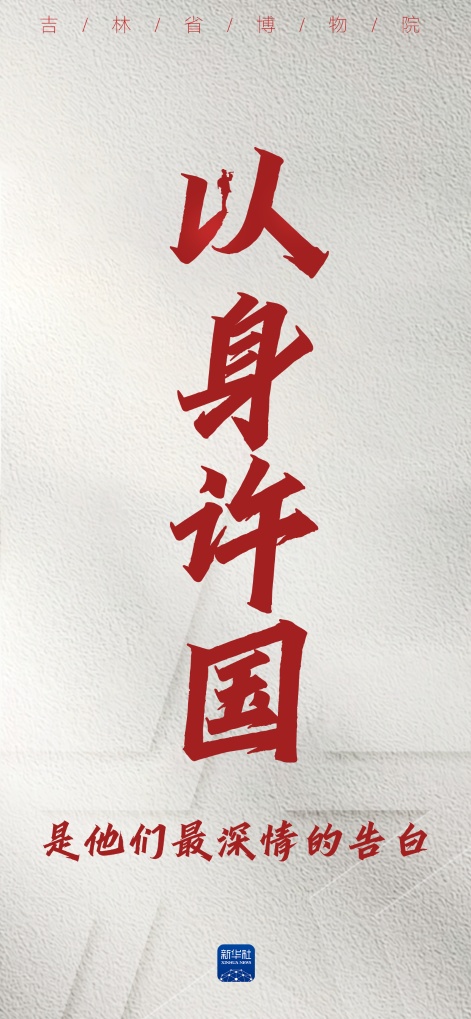 吉/林/省/博/物/院
以身许国
是他们最深情的告白
新华社
XINHUA NEWS